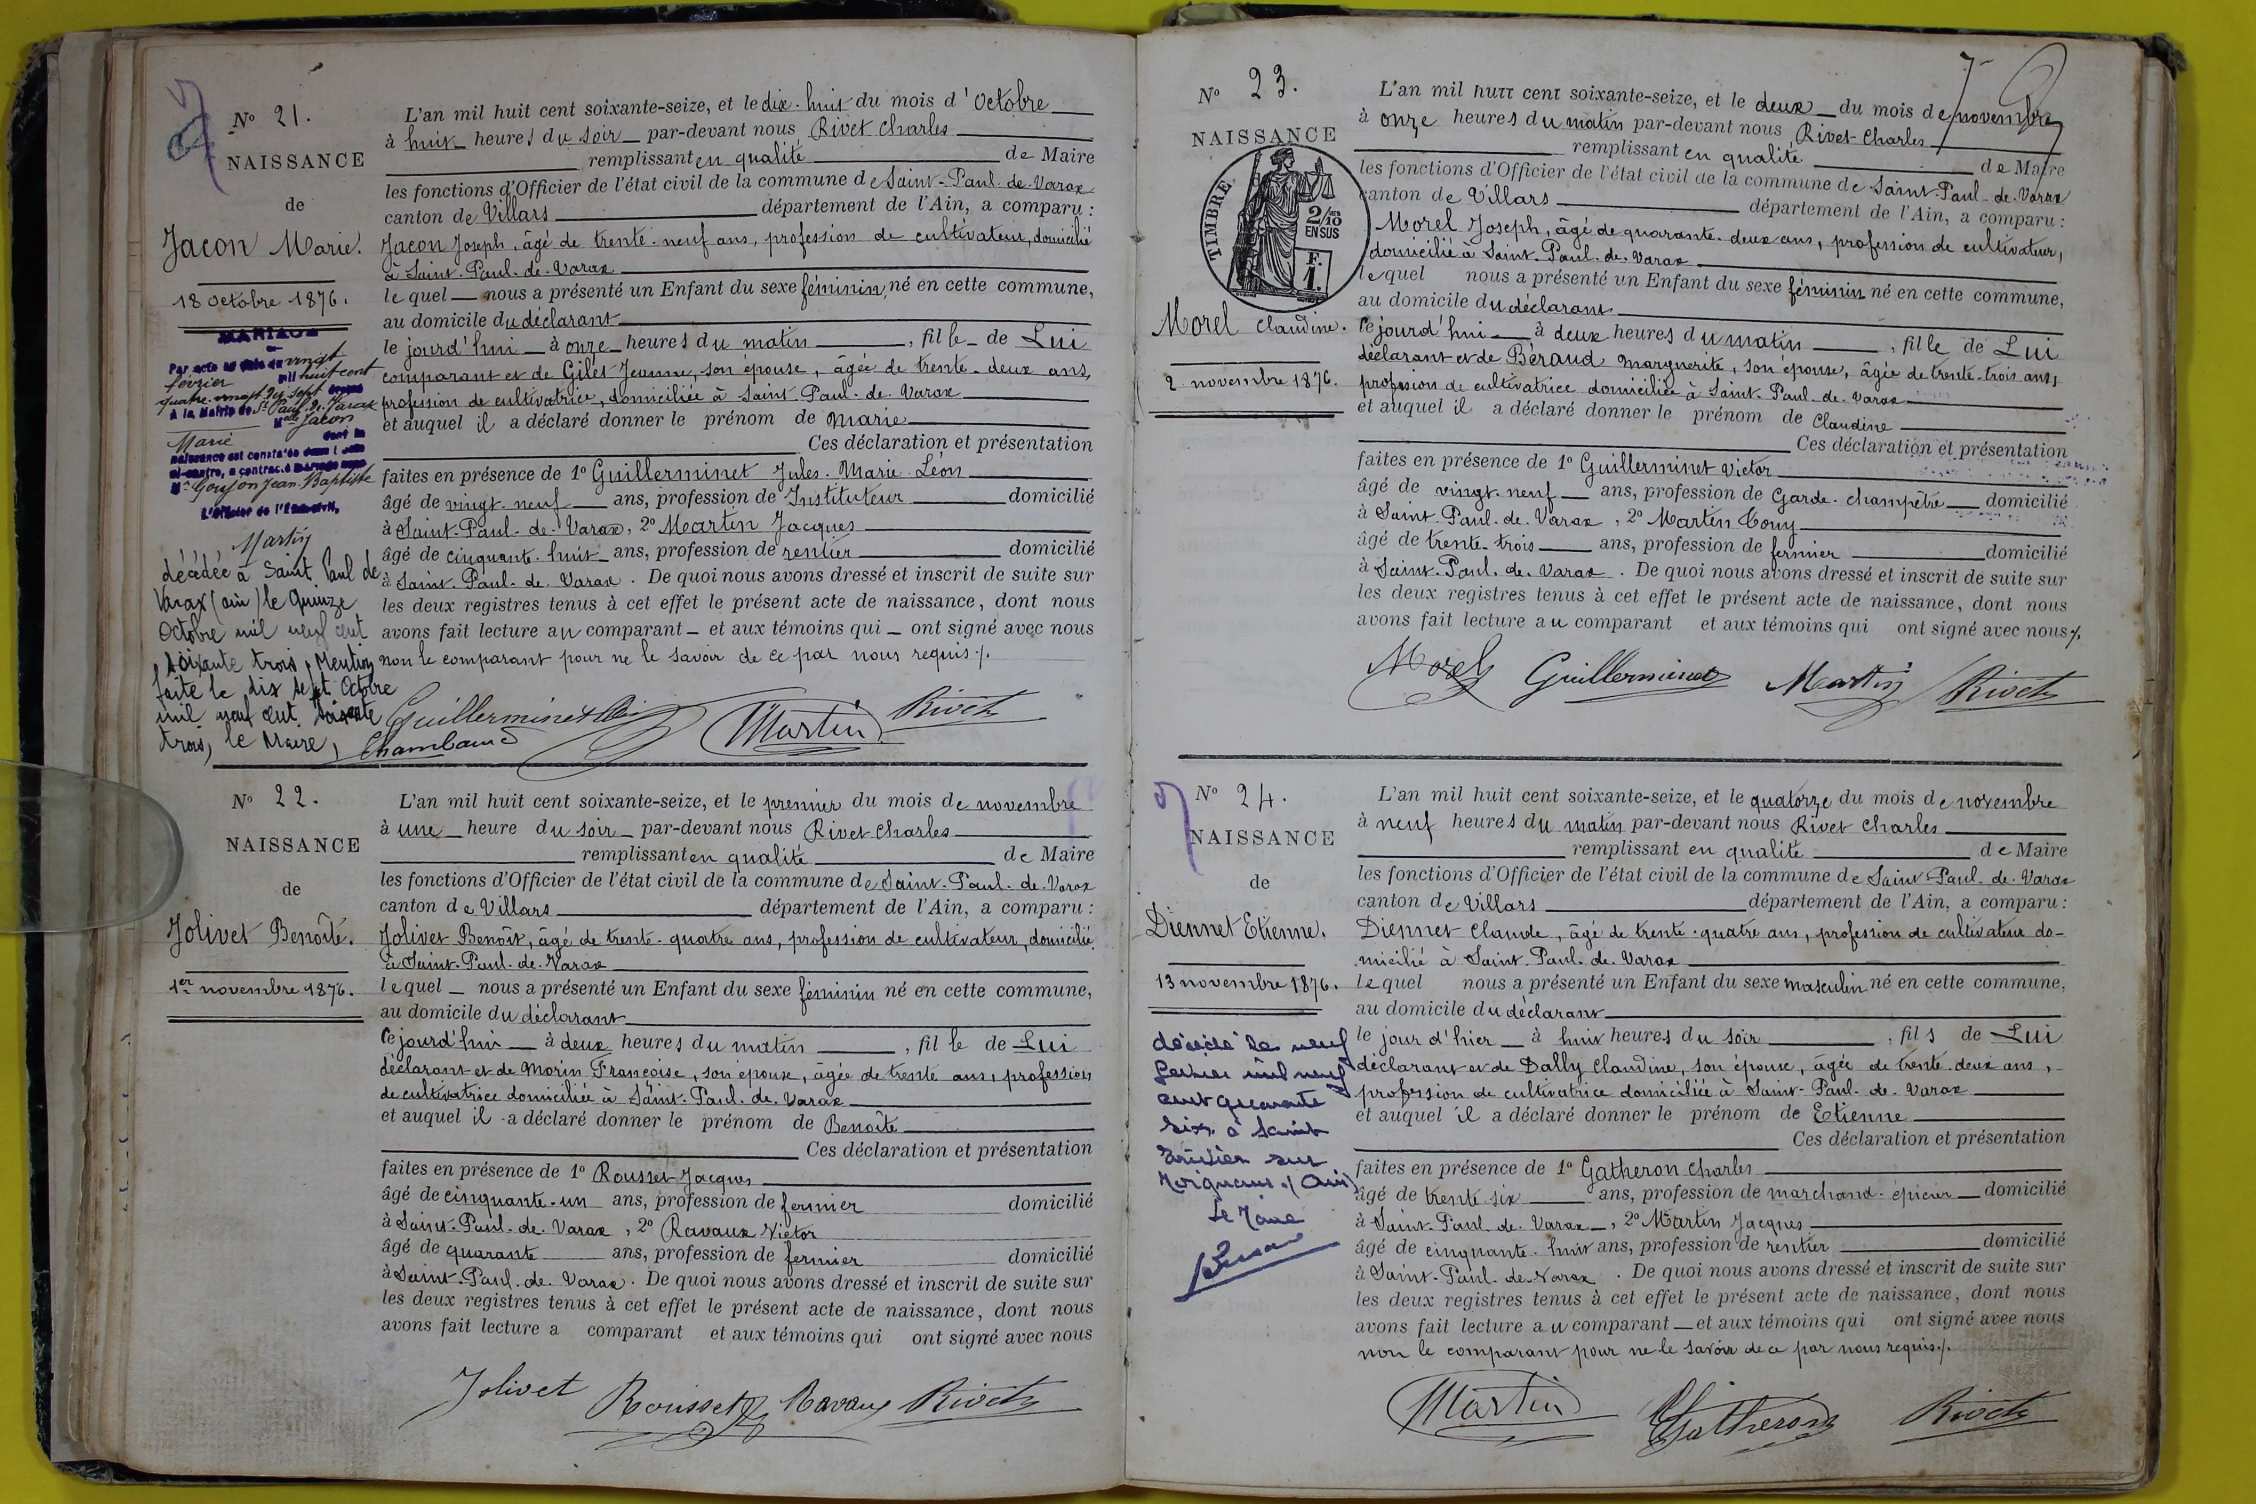 Nº 21.
NAISSANCE
de
Jacon Marie.
18 octobre 1876.
MARIAGE
Par acte en date du vingt
février mil huit cent
quatre-vingt-dix sept dressé
à la Mairie de St Paul de Varax
Mlle Jacon
Marie dont la
naissance est constatée dans l'acte
ci-contre, a contracté mariage avec
Mr Goujon Jean-Baptiste
L'Officier de l'Etat-civil,
Martin
décédée à Saint Paul de
Varax (ain) le Quinze
Octobre mil neuf cent
soixante trois, Mention
faite le dix sept Octobre
mil neuf cent soixante
trois, le Maire,
Chambaud
L'an mil huit cent soixante-seize, et le dix-huit du mois d'octobre
à huit heures du soir par-devant nous Rivet Charles
remplissant en qualité de Maire
les fonctions d'Officier de l'état civil de la commune de Saint-Paul-de-Varax
canton de Villars département de l'Ain, a comparu :
Jacon Joseph, âgé de trente-neuf ans, profession de cultivateur, domicilié
à Saint-Paul-de-Varax
lequel nous a présenté un Enfant du sexe féminin, né en cette commune,
au domicile du déclarant
le jourd'hui à onze heures du matin, fille de Lui
comparant et de Gilet Jeanne, son épouse, âgée de trente-deux ans,
profession de cultivatrice, domiciliée à Saint-Paul-de-Varax
et auquel il a déclaré donner le prénom de Marie
Ces déclaration et présentation
faites en présence de 1º Guillerminet Jules-Marie-Léon
âgé de vingt-neuf ans, profession de Instituteur domicilié
à Saint-Paul-de-Varax, 2º Martin Jacques
âgé de cinquante-huit ans, profession de rentier domicilié
à Saint-Paul-de-Varax. De quoi nous avons dressé et inscrit de suite sur
les deux registres tenus à cet effet le présent acte de naissance, dont nous
avons fait lecture au comparant et aux témoins qui ont signé avec nous
non le comparant pour ne le savoir de ce par nous requis./.
Guillerminet Martin Rivet
Nº 22.
NAISSANCE
de
Jolivet Benoîte.
1er novembre 1876.
L'an mil huit cent soixante-seize, et le premier du mois de novembre
à une heure du soir par-devant nous Rivet Charles
remplissant en qualité de Maire
les fonctions d'Officier de l'état civil de la commune de Saint-Paul-de-Varax
canton de Villars département de l'Ain, a comparu :
Jolivet Benoît, âgé de trente-quatre ans, profession de cultivateur, domicilié
à Saint-Paul-de-Varax
lequel nous a présenté un Enfant du sexe féminin né en cette commune,
au domicile du déclarant
Ce jourd'hui à deux heures du matin, fille de Lui
déclarant et de Morin Françoise, son épouse, âgée de trente ans, profession
de cultivatrice domiciliée à Saint-Paul-de-Varax
et auquel il a déclaré donner le prénom de Benoîte
Ces déclaration et présentation
faites en présence de 1º Rousset Jacques
âgé de cinquante-un ans, profession de fermier domicilié
à Saint-Paul-de-Varax, 2º Ravaux Victor
âgé de quarante ans, profession de fermier domicilié
à Saint-Paul-de-Varax. De quoi nous avons dressé et inscrit de suite sur
les deux registres tenus à cet effet le présent acte de naissance, dont nous
avons fait lecture a comparant et aux témoins qui ont signé avec nous
Jolivet Rousset Ravaux Rivet
Nº 23.
NAISSANCE
TIMBRE
2/10
EN SUS
F.
1.
Morel Claudine.
2 novembre 1876.
L'an mil huit cent soixante-seize, et le deux du mois de novembre
à onze heures du matin par-devant nous Rivet Charles
remplissant en qualité de Maire
les fonctions d'Officier de l'état civil de la commune de Saint-Paul-de-Varax
canton de Villars département de l'Ain, a comparu :
Morel Joseph, âgé de quarante-deux ans, profession de cultivateur,
domicilié à Saint-Paul-de-Varax
lequel nous a présenté un Enfant du sexe féminin né en cette commune,
au domicile du déclarant
Ce jourd'hui à deux heures du matin, fille de Lui
déclarant et de Béraud Marguerite, son épouse, âgée de trente-trois ans,
profession de cultivatrice domiciliée à Saint-Paul-de-Varax
et auquel il a déclaré donner le prénom de Claudine
Ces déclaration et présentation
faites en présence de 1º Guillerminet Victor
âgé de vingt-neuf ans, profession de Garde-champêtre domicilié
à Saint-Paul-de-Varax, 2º Martin Tony
âgé de trente-trois ans, profession de fermier domicilié
à Saint-Paul-de-Varax. De quoi nous avons dressé et inscrit de suite sur
les deux registres tenus à cet effet le présent acte de naissance, dont nous
avons fait lecture au comparant et aux témoins qui ont signé avec nous./.
Morel Guillerminet Martin Rivet
Nº 24.
NAISSANCE
de
Diennet Etienne.
13 novembre 1876.
décédé le neuf
février mil neuf
cent quarante
six à Saint
Trivier sur
Moignans (Ain)
Le Maire
L'an mil huit cent soixante-seize, et le quatorze du mois de novembre
à neuf heures du matin par-devant nous Rivet Charles
remplissant en qualité de Maire
les fonctions d'Officier de l'état civil de la commune de Saint-Paul-de-Varax
canton de Villars département de l'Ain, a comparu :
Diennet Claude, âgé de trente-quatre ans, profession de cultivateur do-
micilié à Saint-Paul-de-Varax
lequel nous a présenté un Enfant du sexe masculin né en cette commune,
au domicile du déclarant
le jour d'hier à huit heures du soir, fils de Lui
déclarant et de Dally Claudine, son épouse, âgée de trente-deux ans,
profession de cultivatrice domiciliée à Saint-Paul-de-Varax
et auquel il a déclaré donner le prénom de Etienne
Ces déclaration et présentation
faites en présence de 1º Gatheron Charles
âgé de trente six ans, profession de marchand-épicier domicilié
à Saint-Paul-de-Varax, 2º Martin Jacques
âgé de cinquante-huit ans, profession de rentier domicilié
à Saint-Paul-de-Varax. De quoi nous avons dressé et inscrit de suite sur
les deux registres tenus à cet effet le présent acte de naissance, dont nous
avons fait lecture au comparant et aux témoins qui ont signé avec nous
non le comparant pour ne le savoir de ce par nous requis./.
Martin Gatheron Rivet